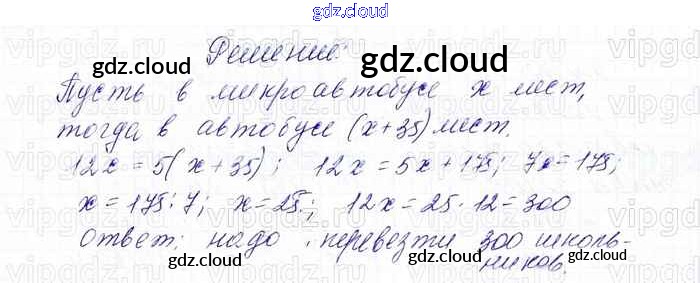 gdz.cloud
Решение:
gdz.cloud gdz.cloud
Пусть в микроавтобусе x мест,
тогда в автобусе (x+35) мест.
12x = 5(x+35); 12x = 5x+175; 7x=175;
x = 175:7; x=25; 12x=25·12=300
ответ: надо перевезти 300 школь-
ников.
gdz.cloud gdz.cloud